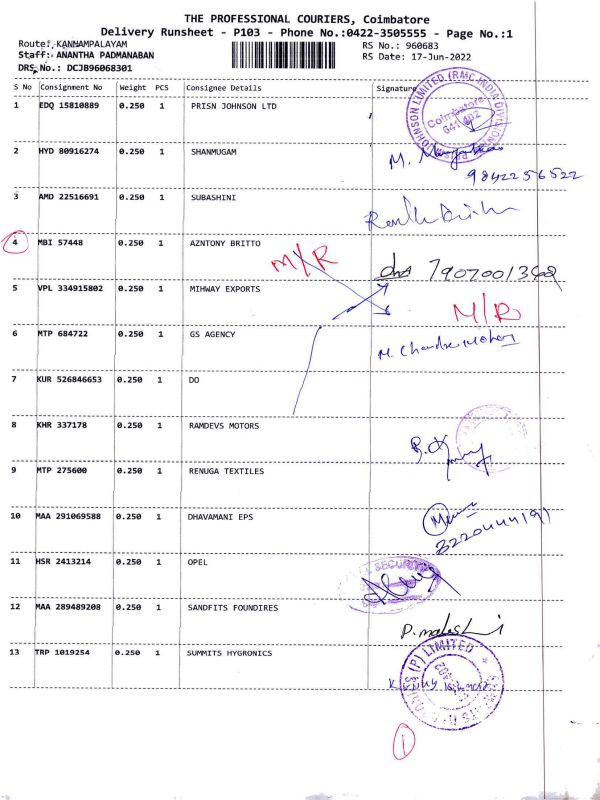 THE PROFESSIONAL COURIERS, Coimbatore
Delivery Runsheet - P103 - Phone No.:0422-3505555 - Page No.:1
Route: KANNAMPALAYAM
RS No.: 960683
Staff: ANANTHA PADMANABAN
RS Date: 17-Jun-2022
DRS No.: DCJB96068301
S No Consignment No Weight PCS Consignee Details Signature
1 EDQ 15810889 0.250 1 PRISN JOHNSON LTD
JOHNSON LIMITED (RMC INDIA DIVISION)
Coimbatore
641 402
2 HYD 80916274 0.250 1 SHANMUGAM
M.
9842256522
3 AMD 22516691 0.250 1 SUBASHINI
4 MBI 57448 0.250 1 AZNTONY BRITTO
M/R
5 VPL 334915802 0.250 1 MIHWAY EXPORTS
M/R
6 MTP 684722 0.250 1 GS AGENCY
M. Chandra Mohan
7 KUR 526846653 0.250 1 DO
8 KHR 337178 0.250 1 RAMDEVS MOTORS
9 MTP 275600 0.250 1 RENUGA TEXTILES
10 MAA 291069588 0.250 1 DHAVAMANI EPS
11 HSR 2413214 0.250 1 OPEL
12 MAA 289489208 0.250 1 SANDFITS FOUNDIRES
13 TRP 1019254 0.250 1 SUMMITS HYGRONICS
(P) LIMITED
1